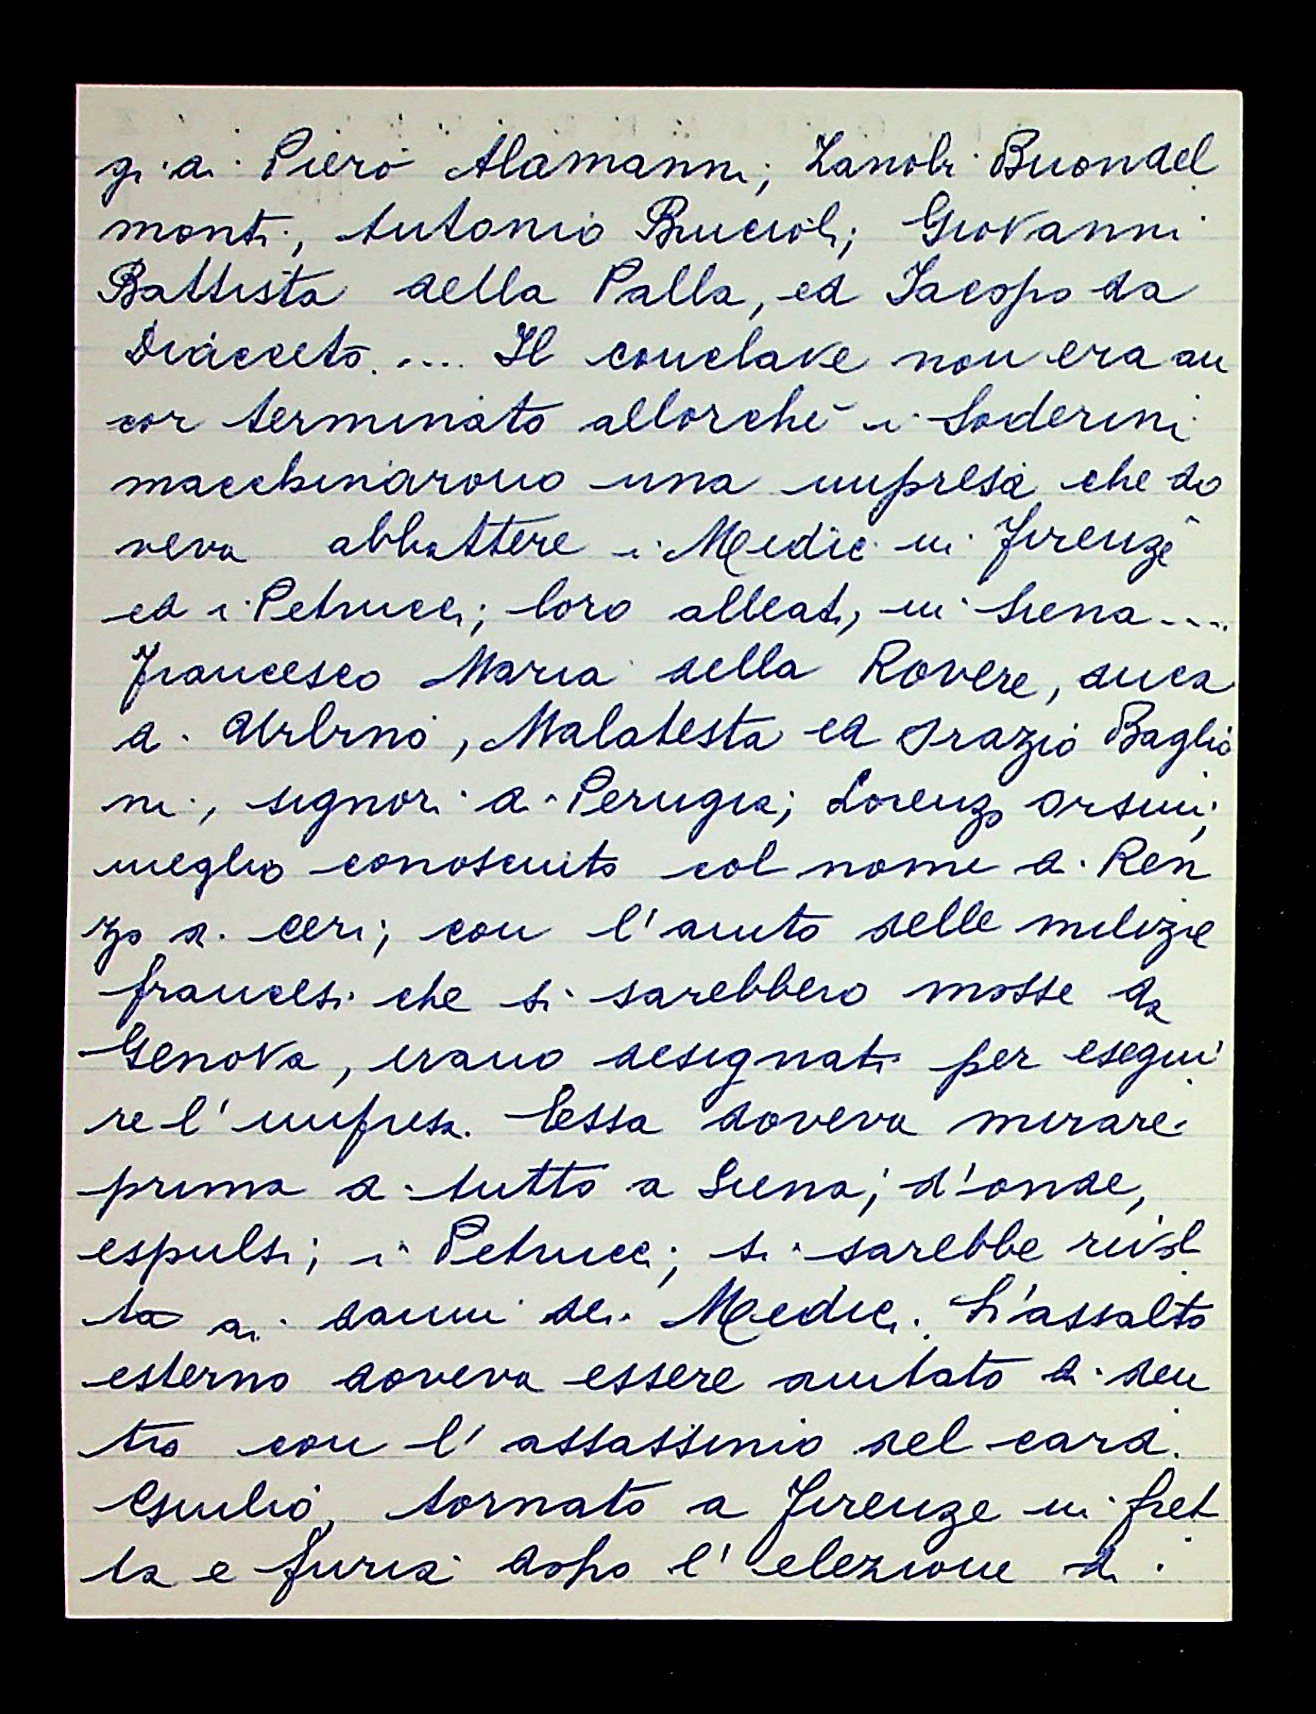 gi di Piero Alamanni, Zanobi Buondel
monti, Antonio Brucioli, Giovanni
Battista della Palla, ed Iacopo da
Diacceto.... Il conclave non era an
cor terminato allorché i Soderini
macchinarono una impresa che do
veva abbattere i Medici in Firenze
ed i Petrucci, loro alleati, in Siena....
Francesco Maria della Rovere, duca
d'Urbino, Malatesta ed Orazio Baglio
ni, signori di Perugia; Lorenzo Orsini,
meglio conosciuto col nome di Ren
zo di Ceri; con l'aiuto delle milizie
francesi che si sarebbero mosse da
Genova, erano designati per esegui
re l'impresa. Essa doveva mirare
prima di tutto a Siena; d'onde,
espulsi i Petrucci, si sarebbe rivol
ta ai danni dei Medici. L'assalto
esterno doveva essere aiutato di den
tro con l'assassinio del card.
Giulio, tornato a Firenze in fret
ta e furia dopo l'elezione di